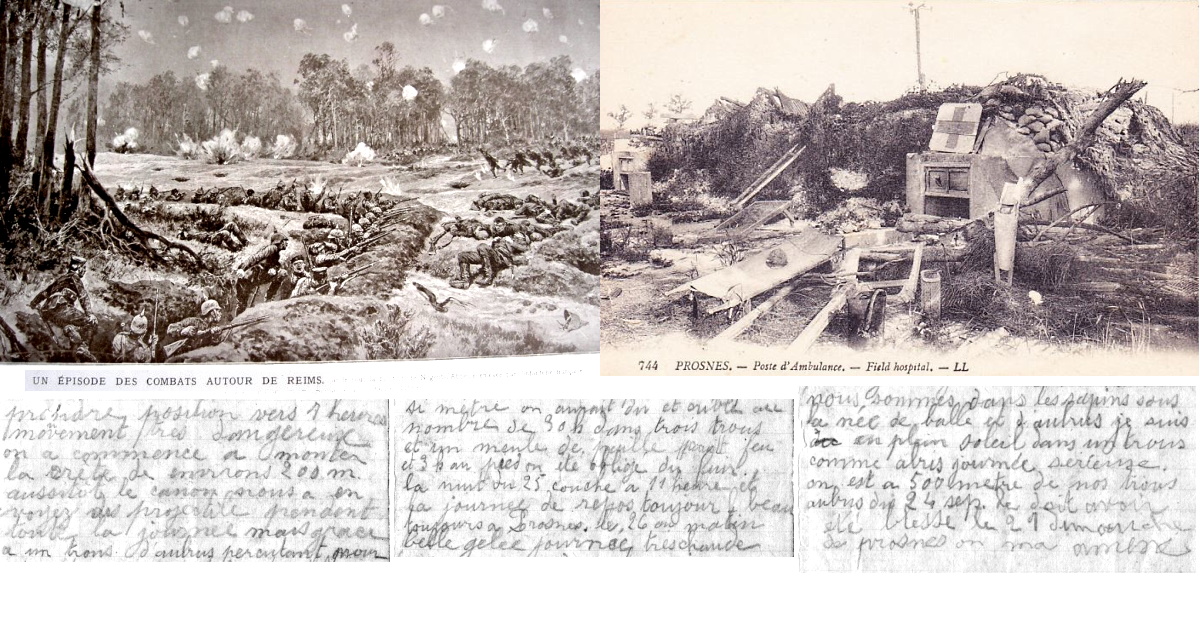 UN ÉPISODE DES COMBATS AUTOUR DE REIMS.
744 PROSNES. — Poste d'Ambulance. — Field hospital. — LL
prendre position vers 9 heures
mouvement tres dangereux
on a commence a monter
la crete de environs 200 m.
aussitot le canon nous a en
voyez des projectile pendent
toute la journee mais grace
a un trous d'autrus percutant pour
si metre on aurait du et oublet au
nombre de 30 h dans trois trous
et un meule de paille prent feu
et 3 h au pres on ete oblige du fuir
la nuit du 25 couche a 11 heure et
la journee de repos toujour beau
toujours a Prosnes. le 26 au matin
belle gelee journee, treschaude
nous sommes dans les sapins sous
la nee de balle et d'autrus je suis
en plain soleil dans un trous
comme abris journee serieuse.
on est a 500 metre de nos trous
autrus du 24 sep. le doit avoir
ete blesse le 27 dimanche
de prosnes on ma amene